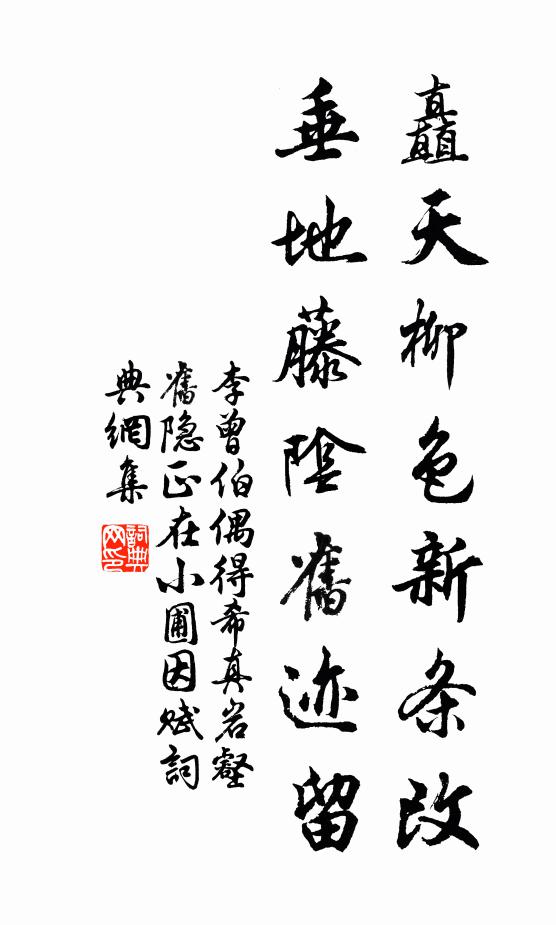 矗天柳色新条改
垂地藤陰舊迹留
李曾伯偶得希真岩壑
舊隐正在小圃因赋詞
典網集
詞典
网印